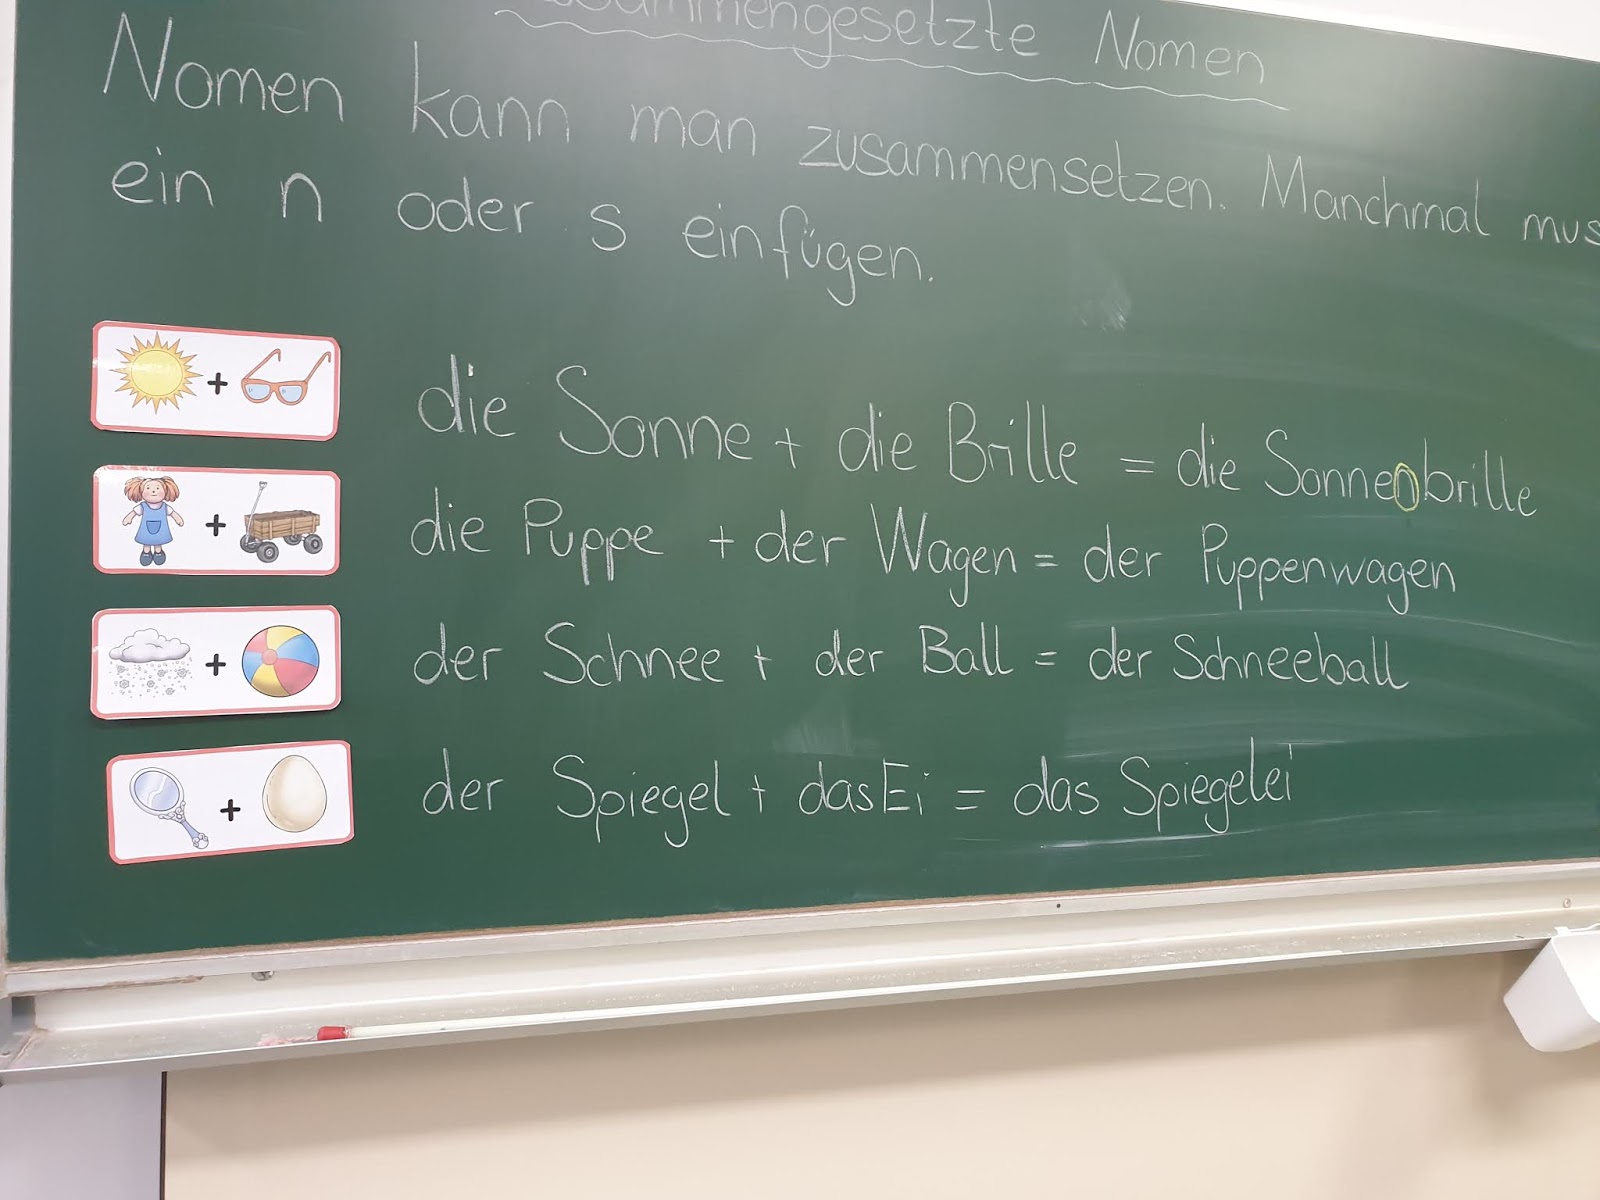 Zusammengesetzte Nomen
Nomen kann man zusammensetzen. Manchmal mus
ein n oder s einfügen.
+ die Sonne + die Brille = die Sonnenbrille
+ die Puppe + der Wagen = der Puppenwagen
+ der Schnee + der Ball = der Schneeball
+ der Spiegel + das Ei = das Spiegelei